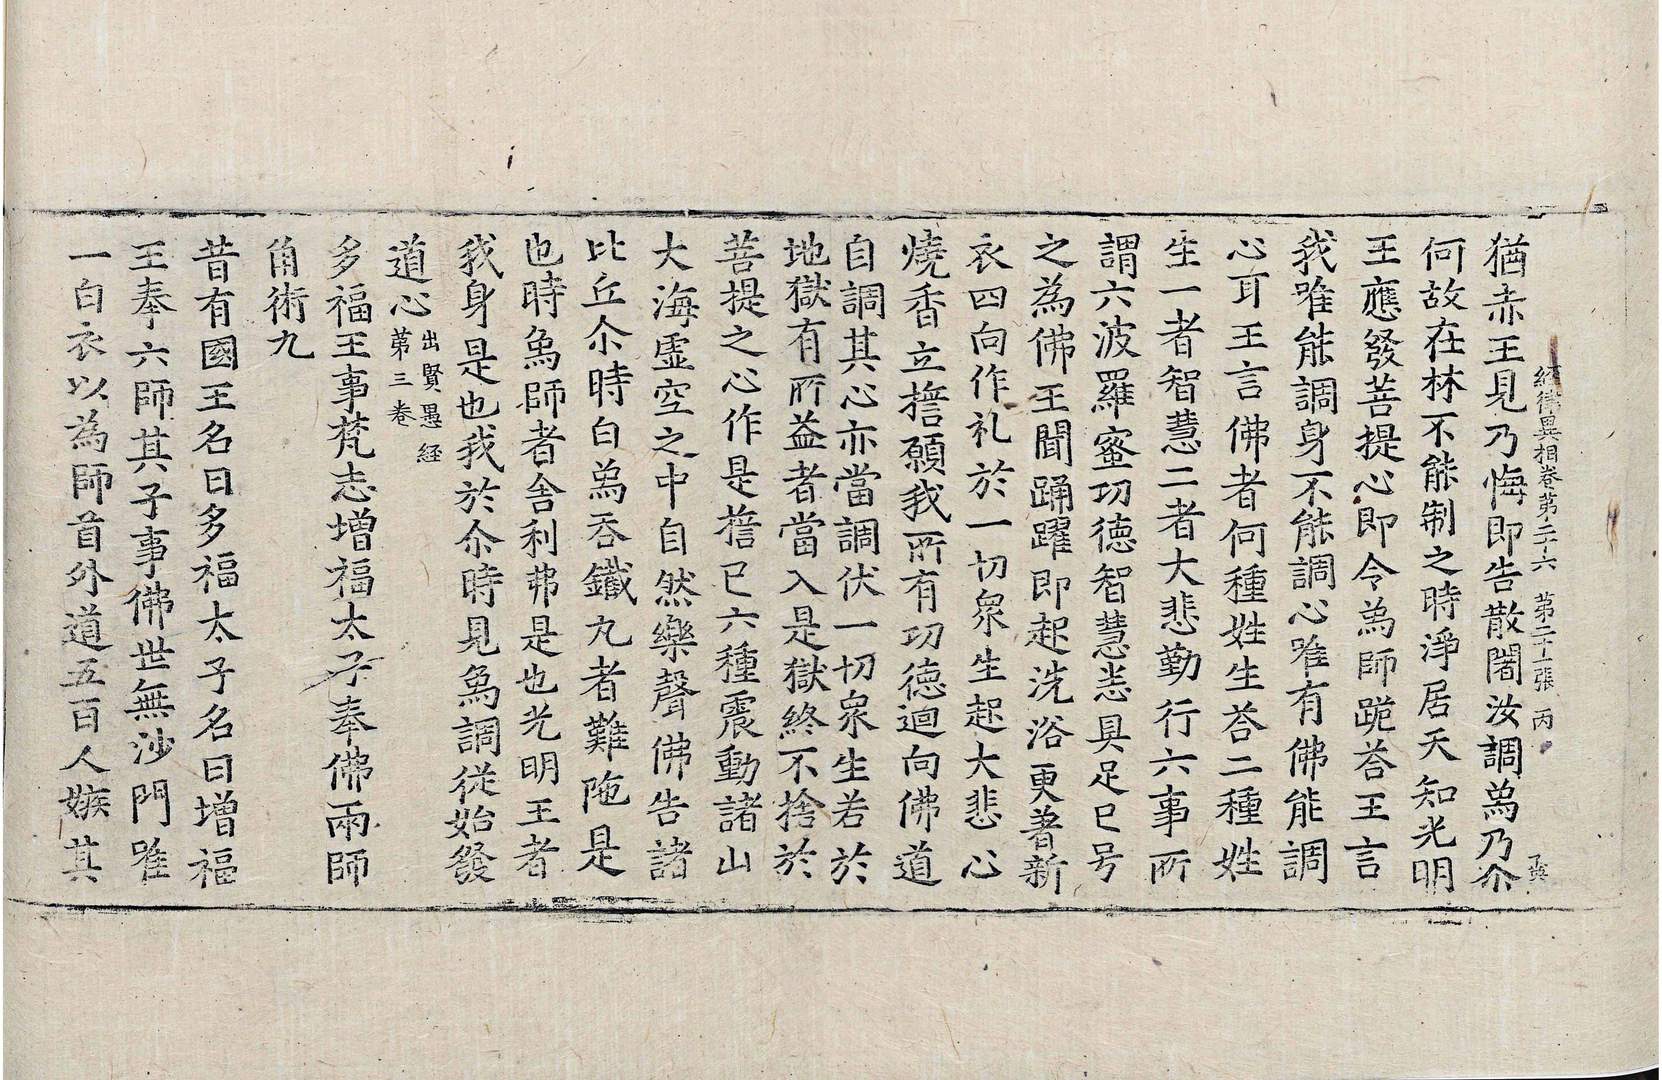 經律異相卷第二十六 第二十一張 丙
猶赤王見乃悔即告散闍汝調爲乃尒
何故在林不能制之時淨居天知光明
王應發菩提心即令為師跪荅王言
我唯能調身不能調心唯有佛能調
心耳王言佛者何種姓生荅二種姓
生一者智慧二者大悲勤行六事所
謂六波羅蜜功德智慧悉具足已号
之為佛王聞踊躍即起洗浴更著新
衣四向作礼於一切衆生起大悲心
燒香立擔願我所有功德迴向佛道
自調其心亦當調伏一切衆生若於
地獄有所益者當入是獄終不捨於
菩提之心作是擔已六種震動諸山
大海虛空之中自然樂聲佛告諸
比丘尒時白爲吞鐵丸者難陁是
也時爲師者舍利弗是也光明王者
我身是也我於尒時見爲調従始發
道心 出賢愚經第三卷
多福王事梵志增福太子奉佛兩師
角術九
昔有國王名曰多福太子名曰增福
王奉六師其子事佛世無沙門唯
一白衣以為師首外道五百人嫉其